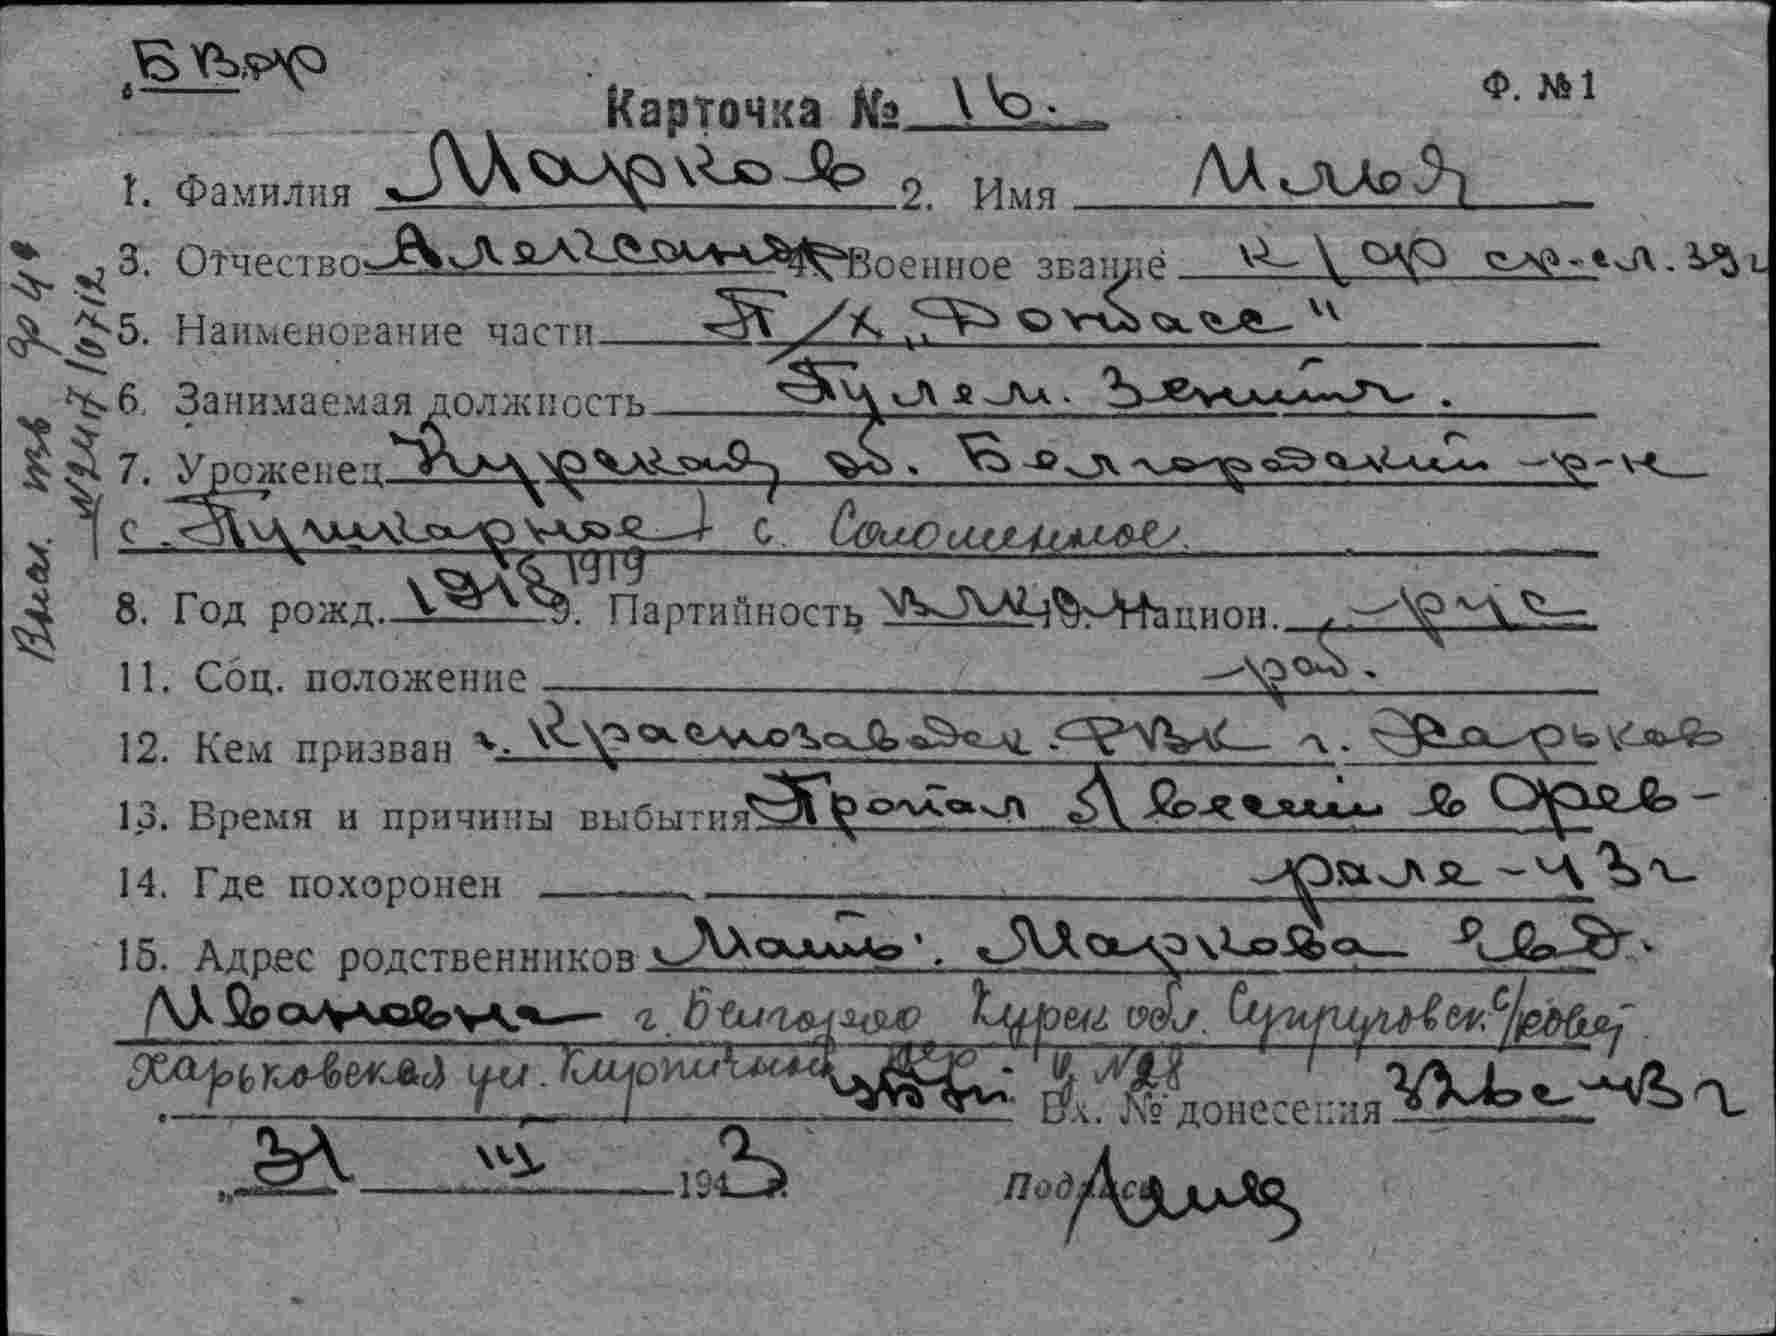 Карточка № 16.
Ф. № 1
1. Фамилия Марков 2. Имя Илья
3. Отчество Александр 4. Военное звание к/ф ср. сл. 39 г
5. Наименование части П/х „Донбасс"
6. Занимаемая должность Пулем. Зенитч.
7. Уроженец Курская об. Белгородский р-н
с. Пушкарное) с. Соломенное.
8. Год рожд. 1918 1919 9. Партийность ВЛКСМ 10. Национ. рус
11. Соц. положение раб.
12. Кем призван г. Краснозаводск. РВК г. Харьков
13. Время и причины выбытия Пропал без вести в Фев-
14. Где похоронен рале-43 г
15. Адрес родственников Мать: Маркова Евд.
Ивановна г. Белгород Курск обл.
Харьковская ул. № 28
Вх. № донесения 43 г
„31 III 1943
Подпись